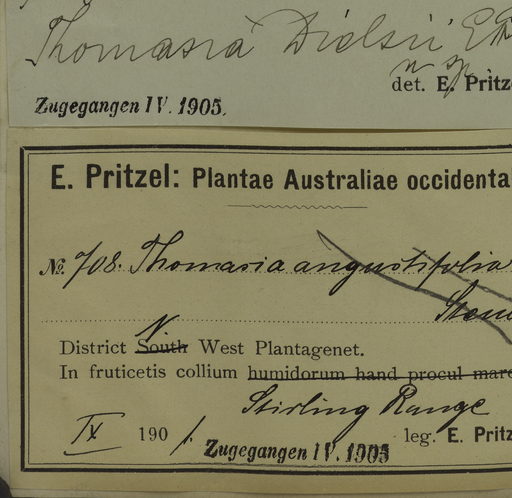 Thomasia Dielsii E.
n. sp.
det. E. Pritz
Zugegangen IV. 1905.
E. Pritzel: Plantae Australiae occidenta
No. 708. Thomasia angustifolia
Steud
N
District South West Plantagenet.
In fruticetis collium humidorum hand procul mare
Stirling Range
IX 1901. leg. E. Pritz
Zugegangen IV. 1905